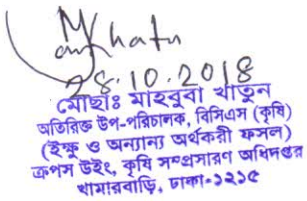 Khatu
28.10.2018
মোছাঃ মাহবুবা খাতুন
অতিরিক্ত উপ-পরিচালক, বিসিএস (কৃষি)
(ইক্ষু ও অন্যান্য অর্থকরী ফসল)
ক্রপস উইং, কৃষি সম্প্রসারণ অধিদপ্তর
খামারবাড়ি, ঢাকা-১২১৫